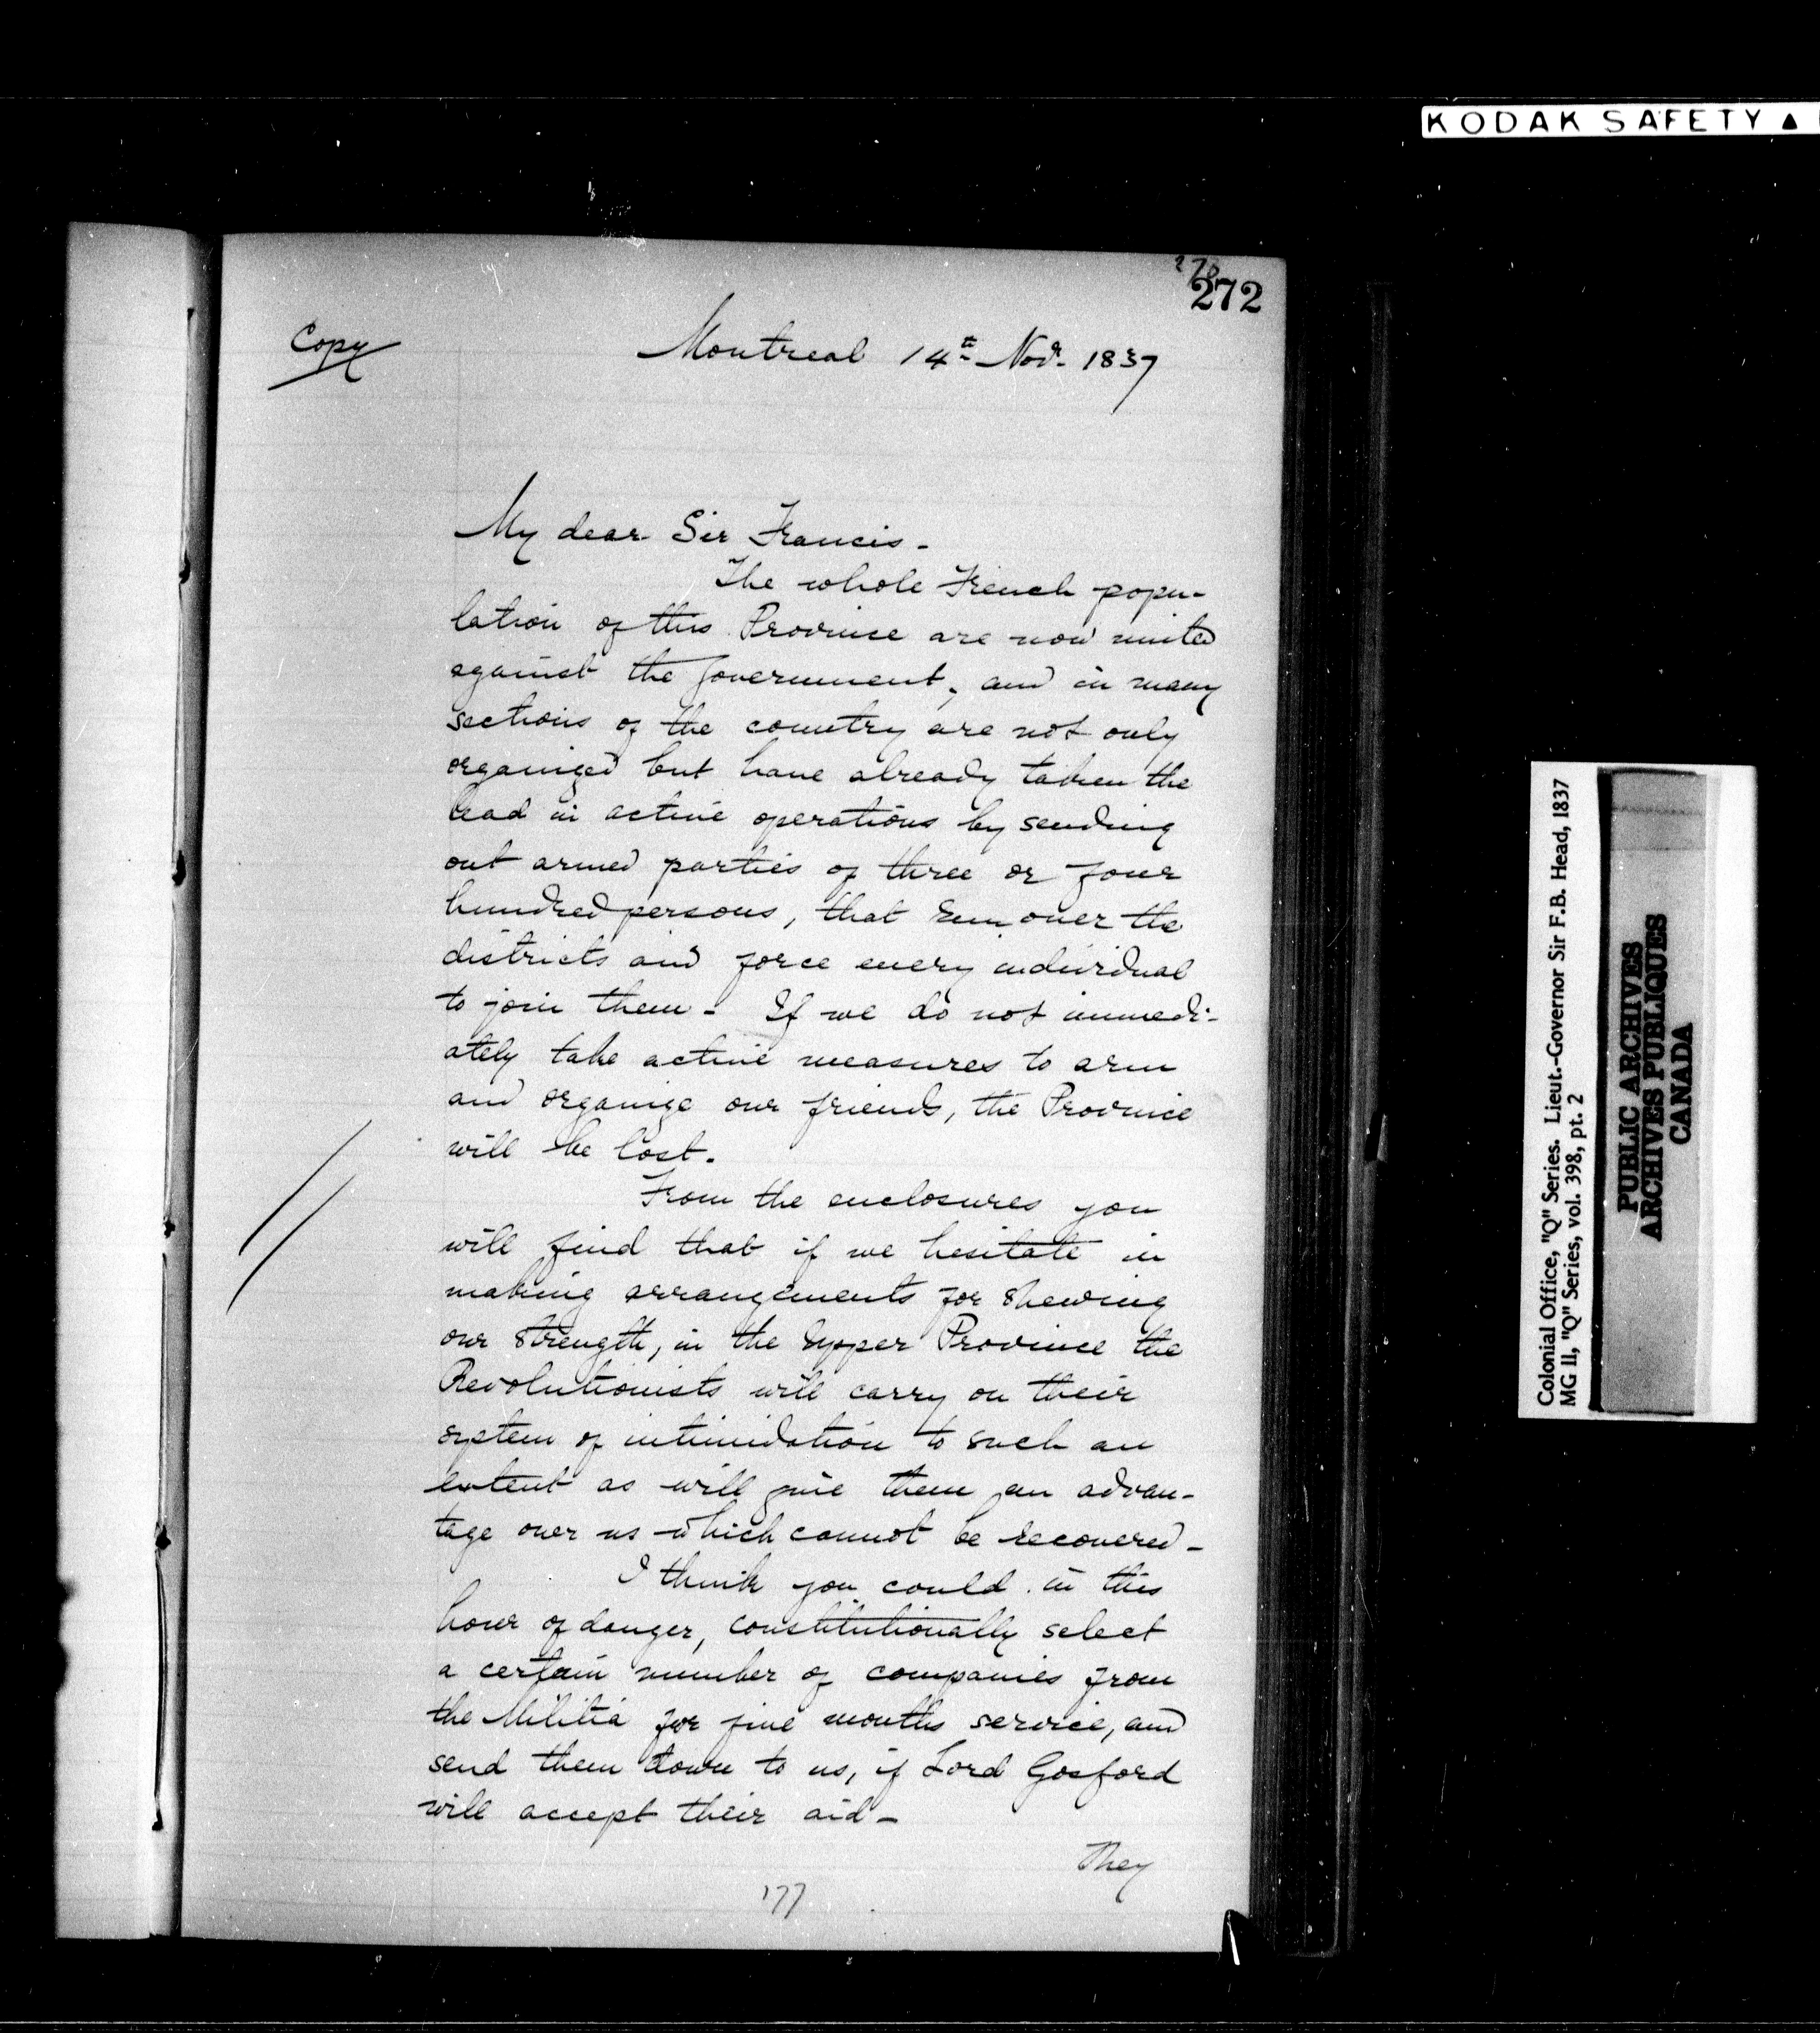 KODAK SAFETY ▲
272
Copy
Montreal 14th Novr. 1837
My dear Sir Francis -
The whole French popu-
lation of this Province are now united
against the Government, and in many
sections of the country are not only
organized but have already taken the
lead in active operations by sending
out armed parties of three or four
hundred persons, that run over the
districts and force every individual
to join them - If we do not immedi-
ately take active measures to arm
and organize our friends, the Province
will be lost.
From the enclosures you
will find that if we hesitate in
making arrangements for shewing
our strength, in the Upper Province the
Revolutionists will carry on their
system of intimidation to such an
extent as will give them an advan-
tage over us which cannot be recovered -
I think you could in this
hour of danger, constitutionally select
a certain number of companies from
the Militia for five months service, and
send them down to us, if Lord Gosford
will accept their aid -
They
177
Colonial Office, "Q" Series. Lieut.-Governor Sir F.B. Head, 1837
MG 11, "Q" Series, vol. 398, pt. 2
PUBLIC ARCHIVES
ARCHIVES PUBLIQUES
CANADA